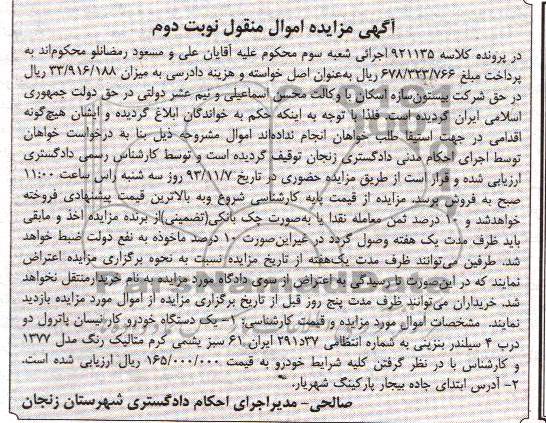 آگهی مزایده اموال منقول نوبت دوم
در پرونده کلاسه ۹۲۱۱۳۵ اجرائی شعبه سوم محکوم علیه آقایان علی و مسعود رمضانلو محکوم‌اند به
پرداخت مبلغ ۶۷۸/۳۲۳/۷۶۶ ریال به‌عنوان اصل خواسته و هزینه دادرسی به میزان ۳۳/۹۱۶/۱۸۸ ریال
در حق شرکت بیستون‌سازه اسکان با وکالت محسن اسماعیلی و نیم عشر دولتی در حق دولت جمهوری
اسلامی ایران گردیده است. فلذا با توجه به اینکه حکم به خواندگان ابلاغ گردیده و ایشان هیچ‌گونه
اقدامی در جهت استیفا طلب خواهان انجام نداده‌اند اموال مشروحه ذیل بنا به درخواست خواهان
توسط اجرای احکام مدنی دادگستری زنجان توقیف گردیده است و توسط کارشناس رسمی دادگستری
ارزیابی شده و قرار است از طریق مزایده حضوری در تاریخ ۹۳/۱۱/۷ روز سه شنبه راس ساعت ۱۱:۰۰
صبح به فروش برسد. مزایده از قیمت پایه کارشناسی شروع وبه بالاترین قیمت پیشنهادی فروخته
خواهدشد و ۱۰ درصد ثمن معامله نقدا یا به‌صورت چک بانکی(تضمینی)از برنده مزایده اخذ و مابقی
باید ظرف مدت یک هفته وصول گردد در غیراین‌صورت ۱۰ درصد ماخوذه به نفع دولت ضبط خواهد
شد. طرفین می‌توانند ظرف مدت یک‌هفته از تاریخ مزایده نسبت به نحوه برگزاری مزایده اعتراض
نمایند که در این‌صورت تا رسیدگی به اعتراض از سوی دادگاه مورد مزایده به نام خریدارمنتقل نخواهد
شد. خریداران می‌توانند ظرف مدت پنج روز قبل از تاریخ برگزاری مزایده از اموال مورد مزایده بازدید
نمایند. مشخصات اموال مورد مزایده و قیمت کارشناسی: ۱- یک دستگاه خودرو کار نیسان پاترول دو
درب ۴ سیلندر بنزینی به شماره انتظامی ۳۷د۲۹۱ ایران ۶۱ سبز یشمی کرم متالیک رنگ مدل ۱۳۷۷
و کارشناس با در نظر گرفتن کلیه شرایط خودرو به قیمت ۱۶۵/۰۰۰/۰۰۰ ریال ارزیابی شده است.
۲- آدرس ابتدای جاده بیجار پارکینگ شهریار.
صالحی- مدیراجرای احکام دادگستری شهرستان زنجان